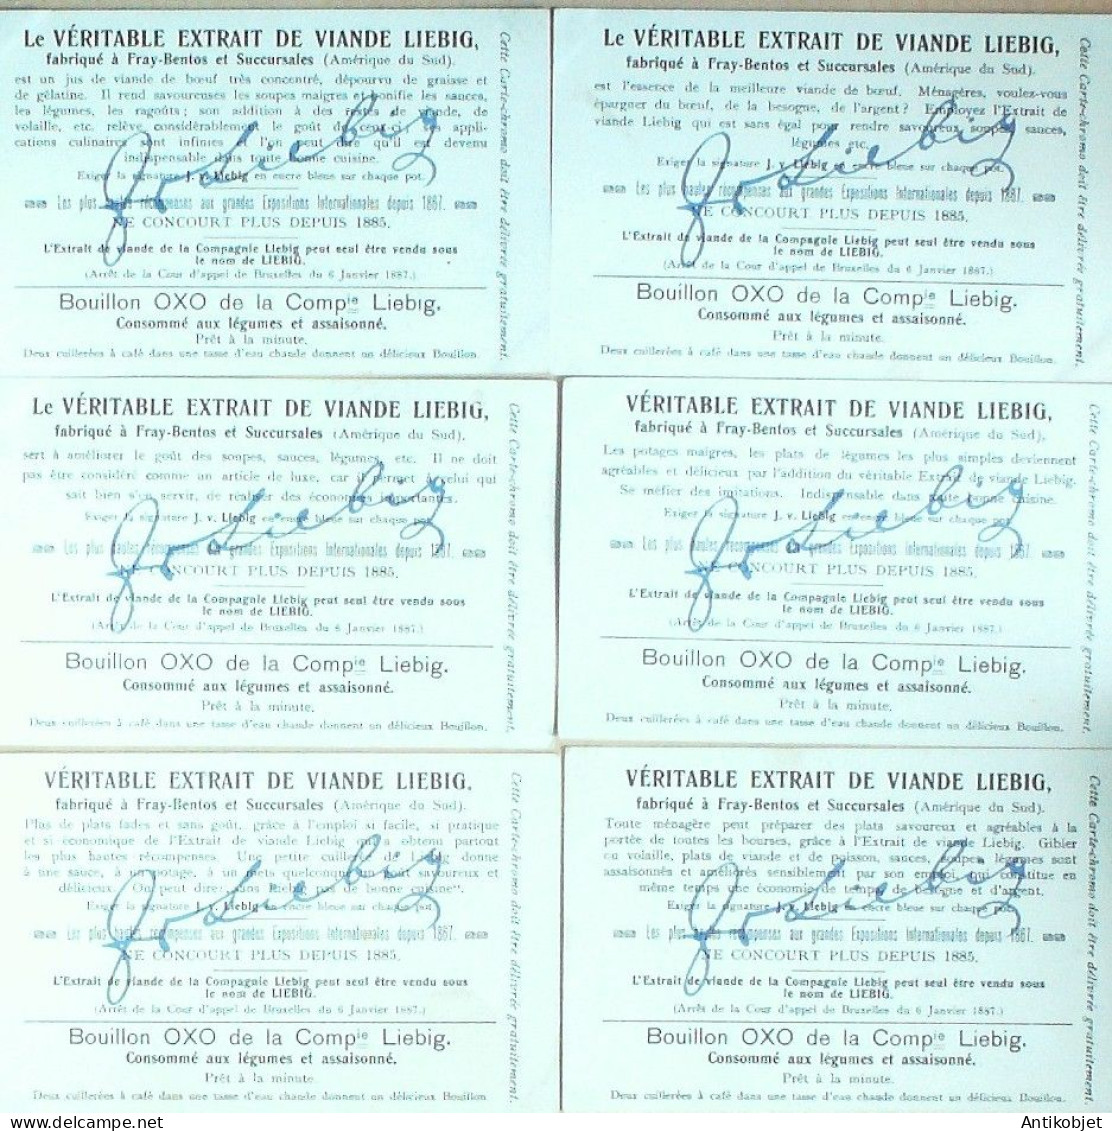 Le VÉRITABLE EXTRAIT DE VIANDE LIEBIG,
fabriqué à Fray-Bentos et Succursales (Amérique du Sud).
est un jus de viande de bœuf très concentré, dépourvu de graisse et
de gélatine. Il rend savoureuses les soupes maigres et bonifie les sauces,
les légumes, les ragoûts; son addition à des restes de viande, de
volaille, etc. relève considérablement le goût de ceux-ci; ses appli-
cations culinaires sont infinies et l'on peut dire qu'il est devenu
indispensable dans toute bonne cuisine.
Exiger la signature J. v. Liebig en encre bleue sur chaque pot.
Les plus hautes récompenses aux grandes Expositions Internationales depuis 1867.
NE CONCOURT PLUS DEPUIS 1885.
L'Extrait de viande de la Compagnie Liebig peut seul être vendu sous
le nom de LIEBIG.
(Arrêt de la Cour d'appel de Bruxelles du 6 Janvier 1887.)
Bouillon OXO de la Compie Liebig.
Consommé aux légumes et assaisonné.
Prêt à la minute.
Deux cuillerées à café dans une tasse d'eau chaude donnent un délicieux Bouillon.
Cette Carte-chromo doit être délivrée gratuitement.
Le VÉRITABLE EXTRAIT DE VIANDE LIEBIG,
fabriqué à Fray-Bentos et Succursales (Amérique du Sud).
est l'essence de la meilleure viande de bœuf. Ménagères, voulez-vous
épargner du bœuf, de la besogne, de l'argent? Employez l'Extrait de
viande Liebig qui est sans égal pour rendre savoureux soupes, sauces,
légumes etc.
Exiger la signature J. v. Liebig en encre bleue sur chaque pot.
Les plus hautes récompenses aux grandes Expositions Internationales depuis 1867.
NE CONCOURT PLUS DEPUIS 1885.
L'Extrait de viande de la Compagnie Liebig peut seul être vendu sous
le nom de LIEBIG.
(Arrêt de la Cour d'appel de Bruxelles du 6 Janvier 1887.)
Bouillon OXO de la Compie Liebig.
Consommé aux légumes et assaisonné.
Prêt à la minute.
Deux cuillerées à café dans une tasse d'eau chaude donnent un délicieux Bouillon.
Cette Carte-chromo doit être délivrée gratuitement.
Le VÉRITABLE EXTRAIT DE VIANDE LIEBIG,
fabriqué à Fray-Bentos et Succursales (Amérique du Sud),
sert à améliorer le goût des soupes, sauces, légumes, etc. Il ne doit
pas être considéré comme un article de luxe, car il permet à celui qui
sait bien s'en servir, de réaliser des économies importantes.
Exiger la signature J. v. Liebig en encre bleue sur chaque pot.
Les plus hautes récompenses aux grandes Expositions Internationales depuis 1867.
NE CONCOURT PLUS DEPUIS 1885.
L'Extrait de viande de la Compagnie Liebig peut seul être vendu sous
le nom de LIEBIG.
(Arrêt de la Cour d'appel de Bruxelles du 6 Janvier 1887.)
Bouillon OXO de la Compie Liebig.
Consommé aux légumes et assaisonné.
Prêt à la minute.
Deux cuillerées à café dans une tasse d'eau chaude donnent un délicieux Bouillon.
Cette Carte-chromo doit être délivrée gratuitement.
VÉRITABLE EXTRAIT DE VIANDE LIEBIG,
fabriqué à Fray-Bentos et Succursales (Amérique du Sud),
Les potages maigres, les plats de légumes les plus simples deviennent
agréables et délicieux par l'addition du véritable Extrait de viande Liebig.
Se méfier des imitations. Indispensable dans toute bonne cuisine.
Exiger la signature J. v. Liebig en encre bleue sur chaque pot.
Les plus hautes récompenses aux grandes Expositions Internationales depuis 1867.
NE CONCOURT PLUS DEPUIS 1885.
L'Extrait de viande de la Compagnie Liebig peut seul être vendu sous
le nom de LIEBIG.
(Arrêt de la Cour d'appel de Bruxelles du 6 Janvier 1887.)
Bouillon OXO de la Compie Liebig.
Consommé aux légumes et assaisonné.
Prêt à la minute.
Deux cuillerées à café dans une tasse d'eau chaude donnent un délicieux Bouillon.
Cette Carte-chromo doit être délivrée gratuitement.
VÉRITABLE EXTRAIT DE VIANDE LIEBIG,
fabriqué à Fray-Bentos et Succursales (Amérique du Sud).
Plus de plats fades et sans goût, grâce à l'emploi si facile, si pratique
et si économique de l'Extrait de viande Liebig qui a obtenu partout
les plus hautes récompenses. Une petite cuillerée de Liebig donne
à une sauce, à un potage, à un mets quelconque un goût savoureux et
délicieux. On peut dire: "sans Liebig pas de bonne cuisine".
Exiger la signature J. v. Liebig en encre bleue sur chaque pot.
Les plus hautes récompenses aux grandes Expositions Internationales depuis 1867.
NE CONCOURT PLUS DEPUIS 1885.
L'Extrait de viande de la Compagnie Liebig peut seul être vendu sous
le nom de LIEBIG.
(Arrêt de la Cour d'appel de Bruxelles du 6 Janvier 1887.)
Bouillon OXO de la Compie Liebig.
Consommé aux légumes et assaisonné.
Prêt à la minute.
Deux cuillerées à café dans une tasse d'eau chaude donnent un délicieux Bouillon.
Cette Carte-chromo doit être délivrée gratuitement.
VÉRITABLE EXTRAIT DE VIANDE LIEBIG,
fabriqué à Fray-Bentos et Succursales (Amérique du Sud).
Toute ménagère peut préparer des plats savoureux et agréables à la
portée de toutes les bourses, grâce à l'Extrait de viande Liebig. Gibier
ou volaille, plats de viande et de poisson, sauces, soupes, légumes sont
assaisonnés et améliorés sensiblement par son emploi, qui constitue en
même temps une économie de temps, de besogne et d'argent.
Exiger la signature J. v. Liebig en encre bleue sur chaque pot.
Les plus hautes récompenses aux grandes Expositions Internationales depuis 1867.
NE CONCOURT PLUS DEPUIS 1885.
L'Extrait de viande de la Compagnie Liebig peut seul être vendu sous
le nom de LIEBIG.
(Arrêt de la Cour d'appel de Bruxelles du 6 Janvier 1887.)
Bouillon OXO de la Compie Liebig.
Consommé aux légumes et assaisonné.
Prêt à la minute.
Deux cuillerées à café dans une tasse d'eau chaude donnent un délicieux Bouillon.
Cette Carte-chromo doit être délivrée gratuitement.
Antikobjet / www.delcampe.net